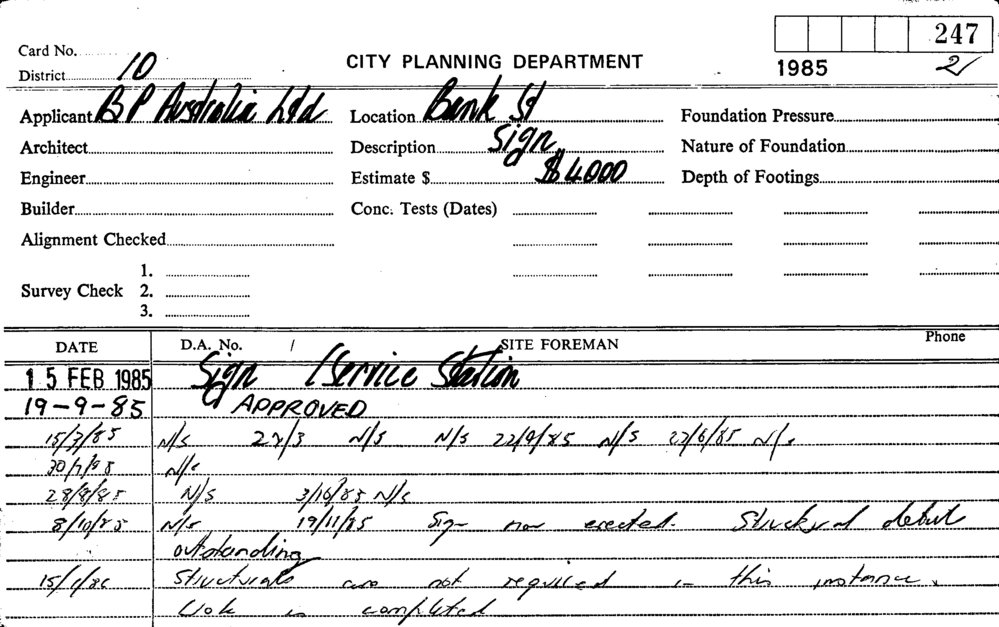 247
Card No.
District 10
CITY PLANNING DEPARTMENT
1985 2
Applicant BP Australia Ltd Location Bank St Foundation Pressure
Architect Description Sign Nature of Foundation
Engineer Estimate $ $4000 Depth of Footings
Builder Conc. Tests (Dates)
Alignment Checked
1.
Survey Check 2.
3.
DATE D.A. No. / SITE FOREMAN Phone
15 FEB 1985 Sign / Service Station
19-9-85 APPROVED
15/3/85 N/S 22/3 N/S N/S 22/4/85 N/S 27/6/85 N/S
30/7/85 N/S
28/8/85 N/S 3/10/85 N/S
8/10/85 N/S 19/11/85 Sign now erected. Structural detail
outstanding
15/1/86 Structurals are not required in this instance.
Work is completed